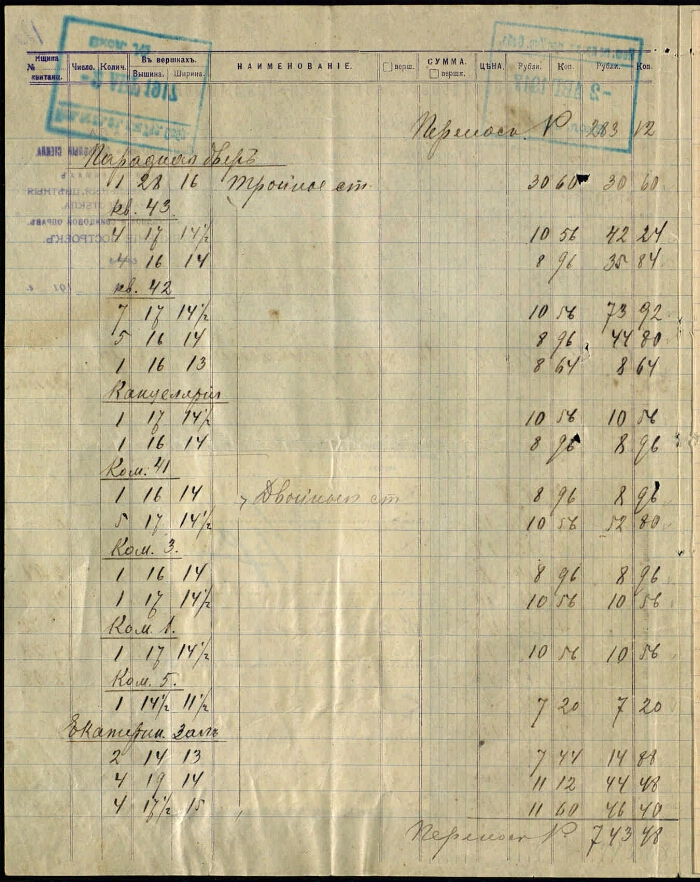 Ящика № квитанц. Число. Колич. Въ вершкахъ. Вышина. Ширина. НАИМЕНОВАНІЕ. верш. СУММА. вершк. ЦѢНА. Рубли. Коп. Рубли. Коп.
Переносъ Р. 283 12
Парадная дверь
1 28 16 тройное ст. 30 60 30 60
кв. 43.
4 17 14½ 10 56 42 24
4 16 14 8 96 35 84
кв. 42
7 17 14½ 10 56 73 92
5 16 14 8 96 44 80
1 16 13 8 64 8 64
Канцелярія
1 17 14½ 10 56 10 56
1 16 14 8 96 8 96
Ком. 41
1 16 14 Двойное ст 8 96 8 96
5 17 14½ 10 56 52 80
Ком. 3.
1 16 14 8 96 8 96
1 17 14½ 10 56 10 56
Ком. 1.
1 17 14½ 10 56 10 56
Ком. 5.
1 14½ 11½ 7 20 7 20
Екатерин. Залъ
2 14 13 7 44 14 88
4 19 14 11 12 44 48
4 17½ 15 11 60 46 40
Переносъ Р. 743 48